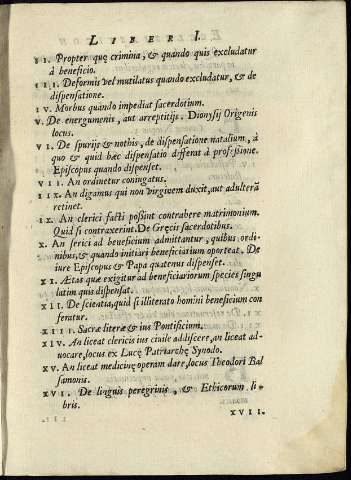 LIBER I.
II. Propter quę crimina, & quando quis excludatur
à beneficio.
III. Deformis vel mutilatus quando excludatur, & de
dispensatione.
IV. Morbus quando impediat sacerdotium.
V. De energumenis, aut arreptitijs. Dionysij Origenis
locus.
VI. De spurijs & nothis, de dispensatione natalium, à
quo & quid hæc dispensatio differat à professione.
Episcopus quando dispenset.
VII. An ordinetur coniugatus.
IIX. An digamus qui non virginem duxit, aut adulterā
retinet.
IX. An clerici facti possint contrahere matrimonium.
Quid si contraxerint. De Gręcis sacerdotibus.
X. An serici ad beneficium admittantur, quibus ordi-
nibus, & quando initiari beneficiarium oporteat. De
iure Episcopus & Papa quatenus dispenset.
XI. Ætas quæ exigitur ad beneficiariorum species singu
latim quis dispensat.
XII. De scientia, quid si illiterato homini beneficium con
feratur.
XIII. Sacræ literæ & ius Pontificium.
XIV. An liceat clericis ius ciuile addiscere, an liceat ad-
uocare, locus ex Lucę Patriarchę Synodo.
XV. An liceat medicinę operam dare, locus Theodori Bal
samonis.
XVI. De linguis peregrinis, & Ethicorum li-
bris.
XVII.